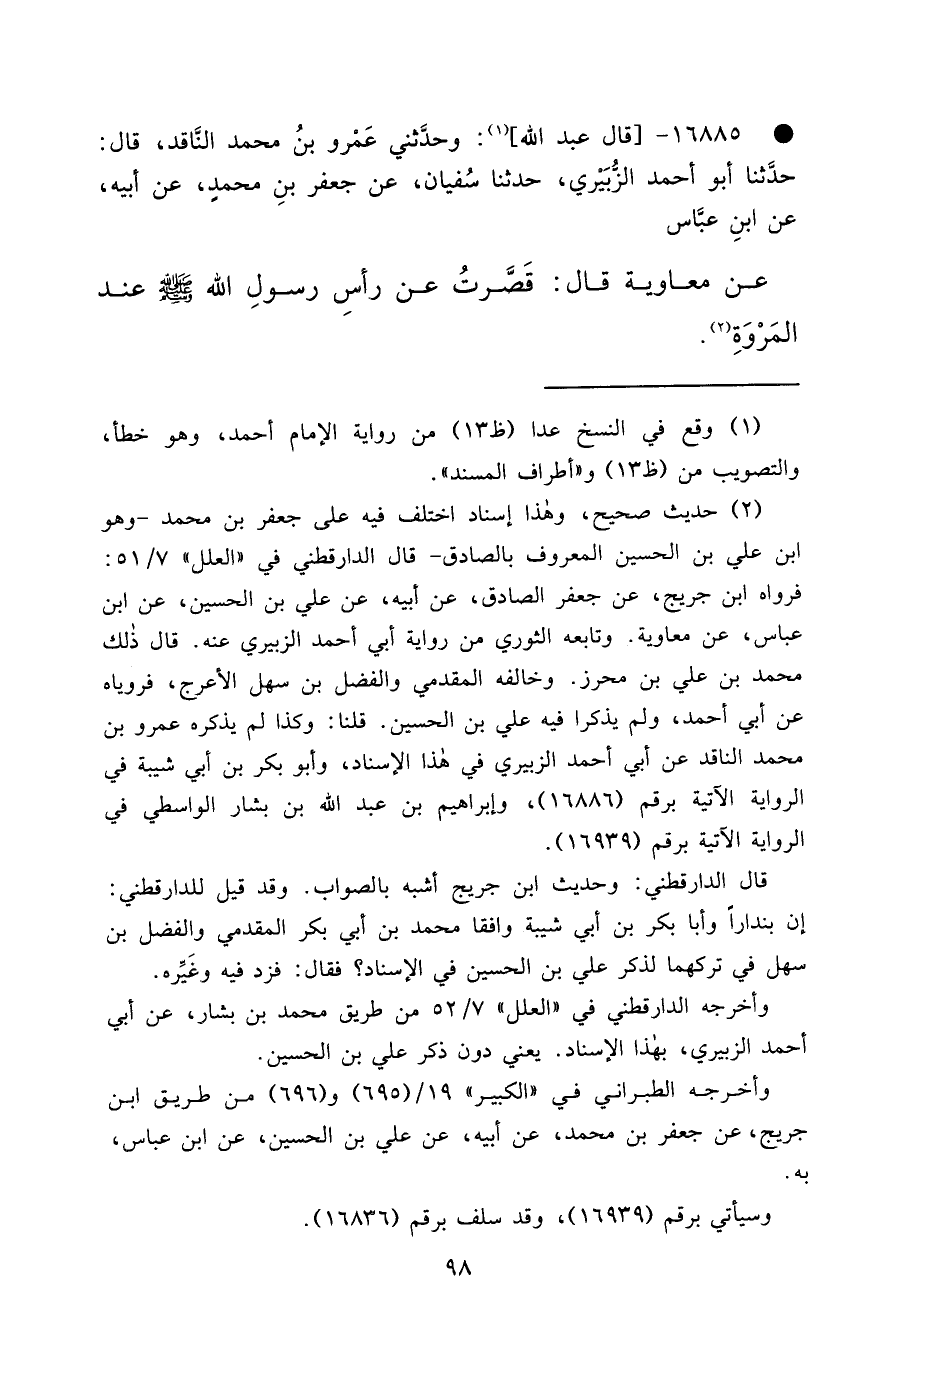 ● ١٦٨٨٥- [قال عبد الله]⁽١⁾: وحدَّثني عَمْرو بنُ محمد النَّاقد، قال:
حدَّثنا أبو أحمد الزُّبَيْري، حدثنا سُفيان، عن جعفر بنِ محمدٍ، عن أبيه،
عن ابنِ عبَّاس
عن معاوية قال: قَصَّرتُ عن رأسِ رسولِ الله ﷺ عند
المَرْوَةِ⁽٢⁾.
(١) وقع في النسخ عدا (ظ١٣) من رواية الإمام أحمد، وهو خطأ،
والتصويب من (ظ١٣) و«أطراف المسند».
(٢) حديث صحيح، وهٰذا إسناد اختلف فيه على جعفر بن محمد -وهو
ابن علي بن الحسين المعروف بالصادق- قال الدارقطني في «العلل» ٥١/٧:
فرواه ابن جريج، عن جعفر الصادق، عن أبيه، عن علي بن الحسين، عن ابن
عباس، عن معاوية. وتابعه الثوري من رواية أبي أحمد الزبيري عنه. قال ذٰلك
محمد بن علي بن محرز. وخالفه المقدمي والفضل بن سهل الأعرج، فروياه
عن أبي أحمد، ولم يذكرا فيه علي بن الحسين. قلنا: وكذا لم يذكره عمرو بن
محمد الناقد عن أبي أحمد الزبيري في هٰذا الإسناد، وأبو بكر بن أبي شيبة في
الرواية الآتية برقم (١٦٨٨٦)، وإبراهيم بن عبد الله بن بشار الواسطي في
الرواية الآتية برقم (١٦٩٣٩).
قال الدارقطني: وحديث ابن جريج أشبه بالصواب. وقد قيل للدارقطني:
إن بنداراً وأبا بكر بن أبي شيبة وافقا محمد بن أبي بكر المقدمي والفضل بن
سهل في تركهما لذكر علي بن الحسين في الإسناد؟ فقال: فزد فيه وغَيِّره.
وأخرجه الدارقطني في «العلل» ٥٢/٧ من طريق محمد بن بشار، عن أبي
أحمد الزبيري، بهٰذا الإسناد. يعني دون ذكر علي بن الحسين.
وأخرجه الطبراني في «الكبير» ١٩/(٦٩٥) و(٦٩٦) من طريق ابن
جريج، عن جعفر بن محمد، عن أبيه، عن علي بن الحسين، عن ابن عباس،
به.
وسيأتي برقم (١٦٩٣٩)، وقد سلف برقم (١٦٨٣٦).
٩٨